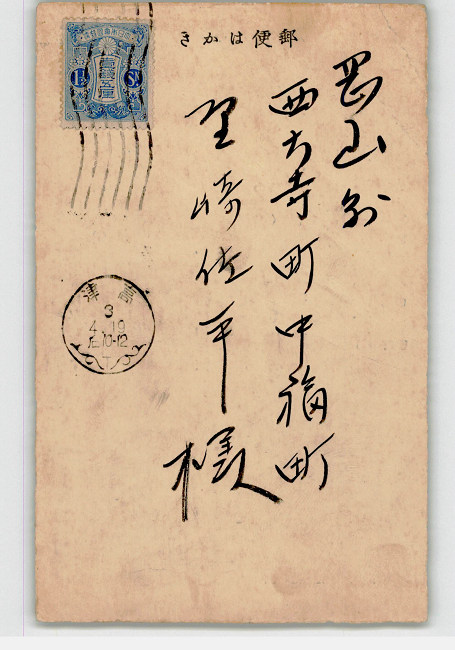 郵便はかき
岡山外
西大寺町中福町
野崎佐平様
1½ Sⁿ
高津
3
4.19
10-12